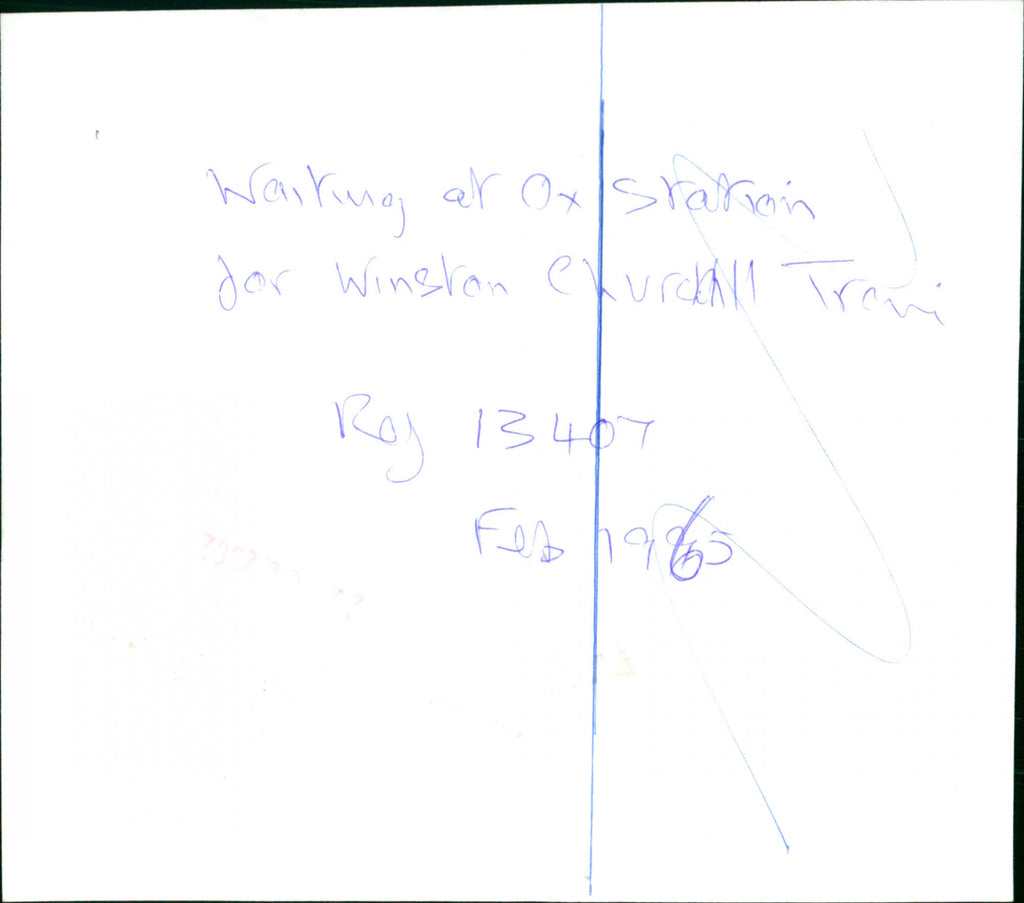 Waiting at Ox Station
for Winston Churchill Train
Roy 13407
Feb 1965